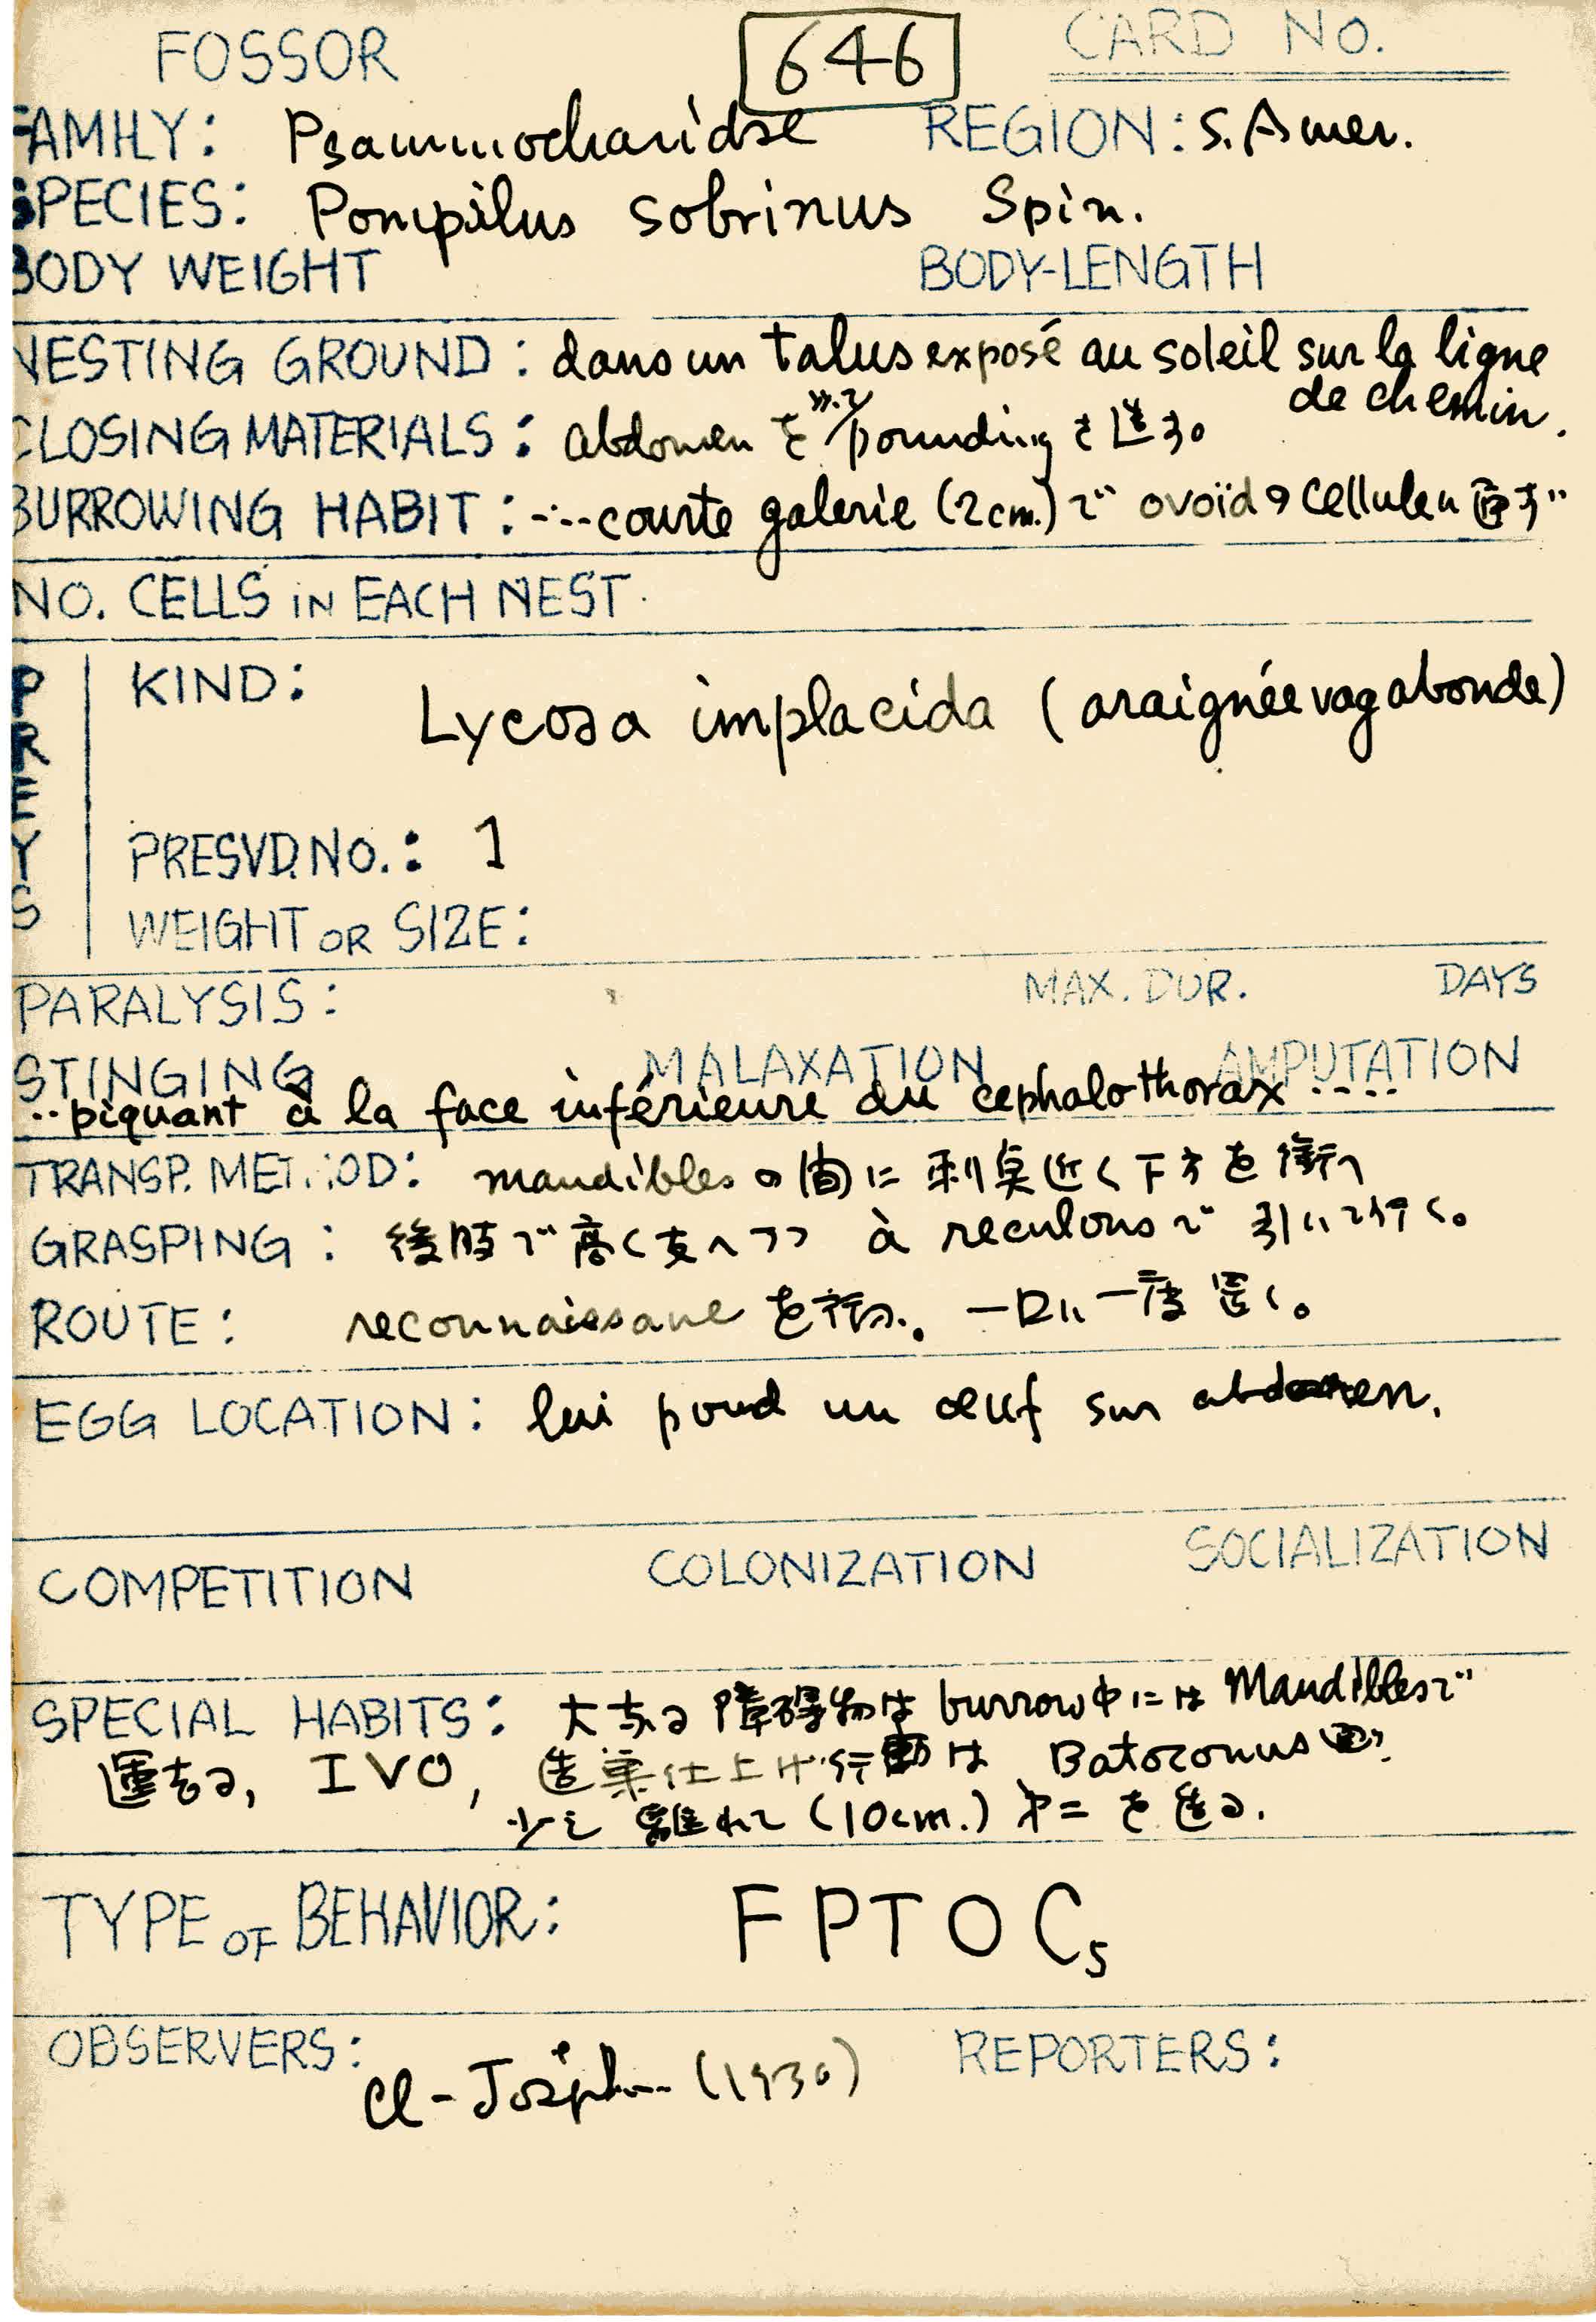 FOSSOR 646 CARD No.
FAMILY: Psammocharidae REGION: S. Amer.
SPECIES: Pompilus sobrinus Spin.
BODY WEIGHT BODY-LENGTH
NESTING GROUND: dans un talus exposé au soleil sur la ligne
de chemin.
CLOSING MATERIALS: abdomen を pounding
BURROWING HABIT: ....courte galerie (2cm.) で ovoïd cellule
NO. CELLS iN EACH NEST.
PREYS
KIND: Lycosa implacida (araignée vagabonde)
PRESVD. NO.: 1
WEIGHT OR SIZE:
PARALYSIS: MAX. DUR. DAYS
STINGING MALAXATION AMPUTATION
..piquant à la face inférieure du cephalothorax ....
TRANSP. METHOD: mandibles の間に 近く下方を銜へ
GRASPING: 後肢で高く支へつつ à reculons で 引いて行く。
ROUTE: reconnaissance を行ふ。 一度置く。
EGG LOCATION: lui pond un œuf sur abdomen.
COMPETITION COLONIZATION SOCIALIZATION
SPECIAL HABITS: 大なる障碍物は burrow 中には Mandibles で
運ぶ, IVO, 造巣仕上げ行動は Batozonus
少し離れて (10cm.) を造る.
TYPE OF BEHAVIOR: FPTOC5
OBSERVERS: Cl-Joseph (1930) REPORTERS: